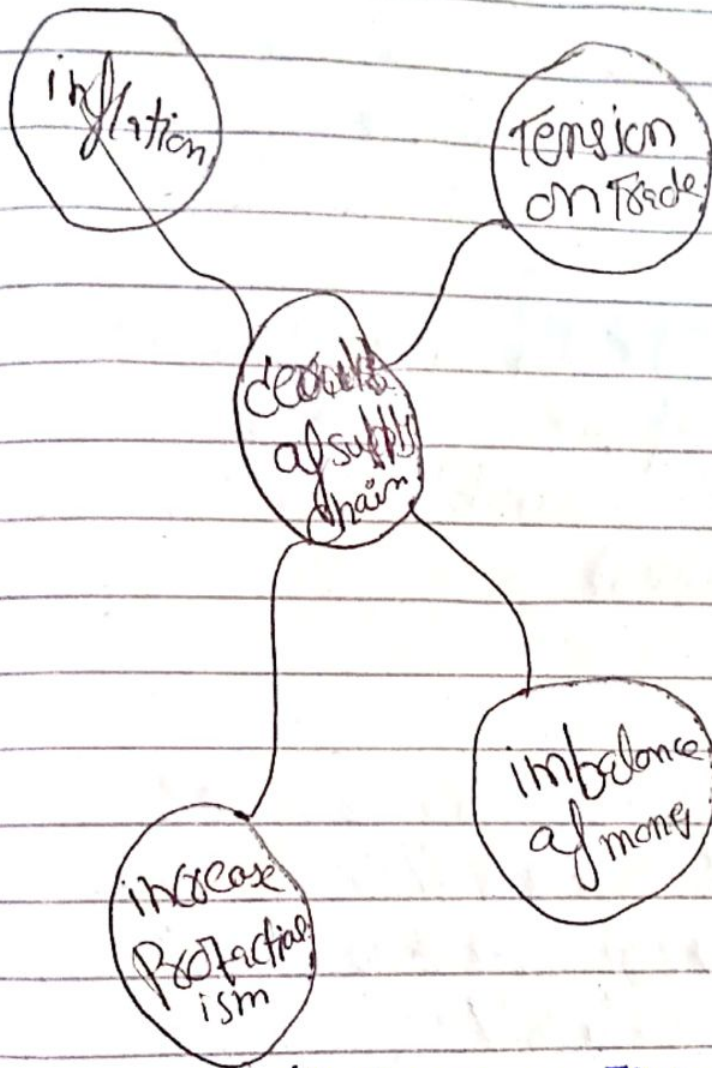 inflation
Tension
on Trade
of supply
chain
imbalance
of money
increase
Protection
ism